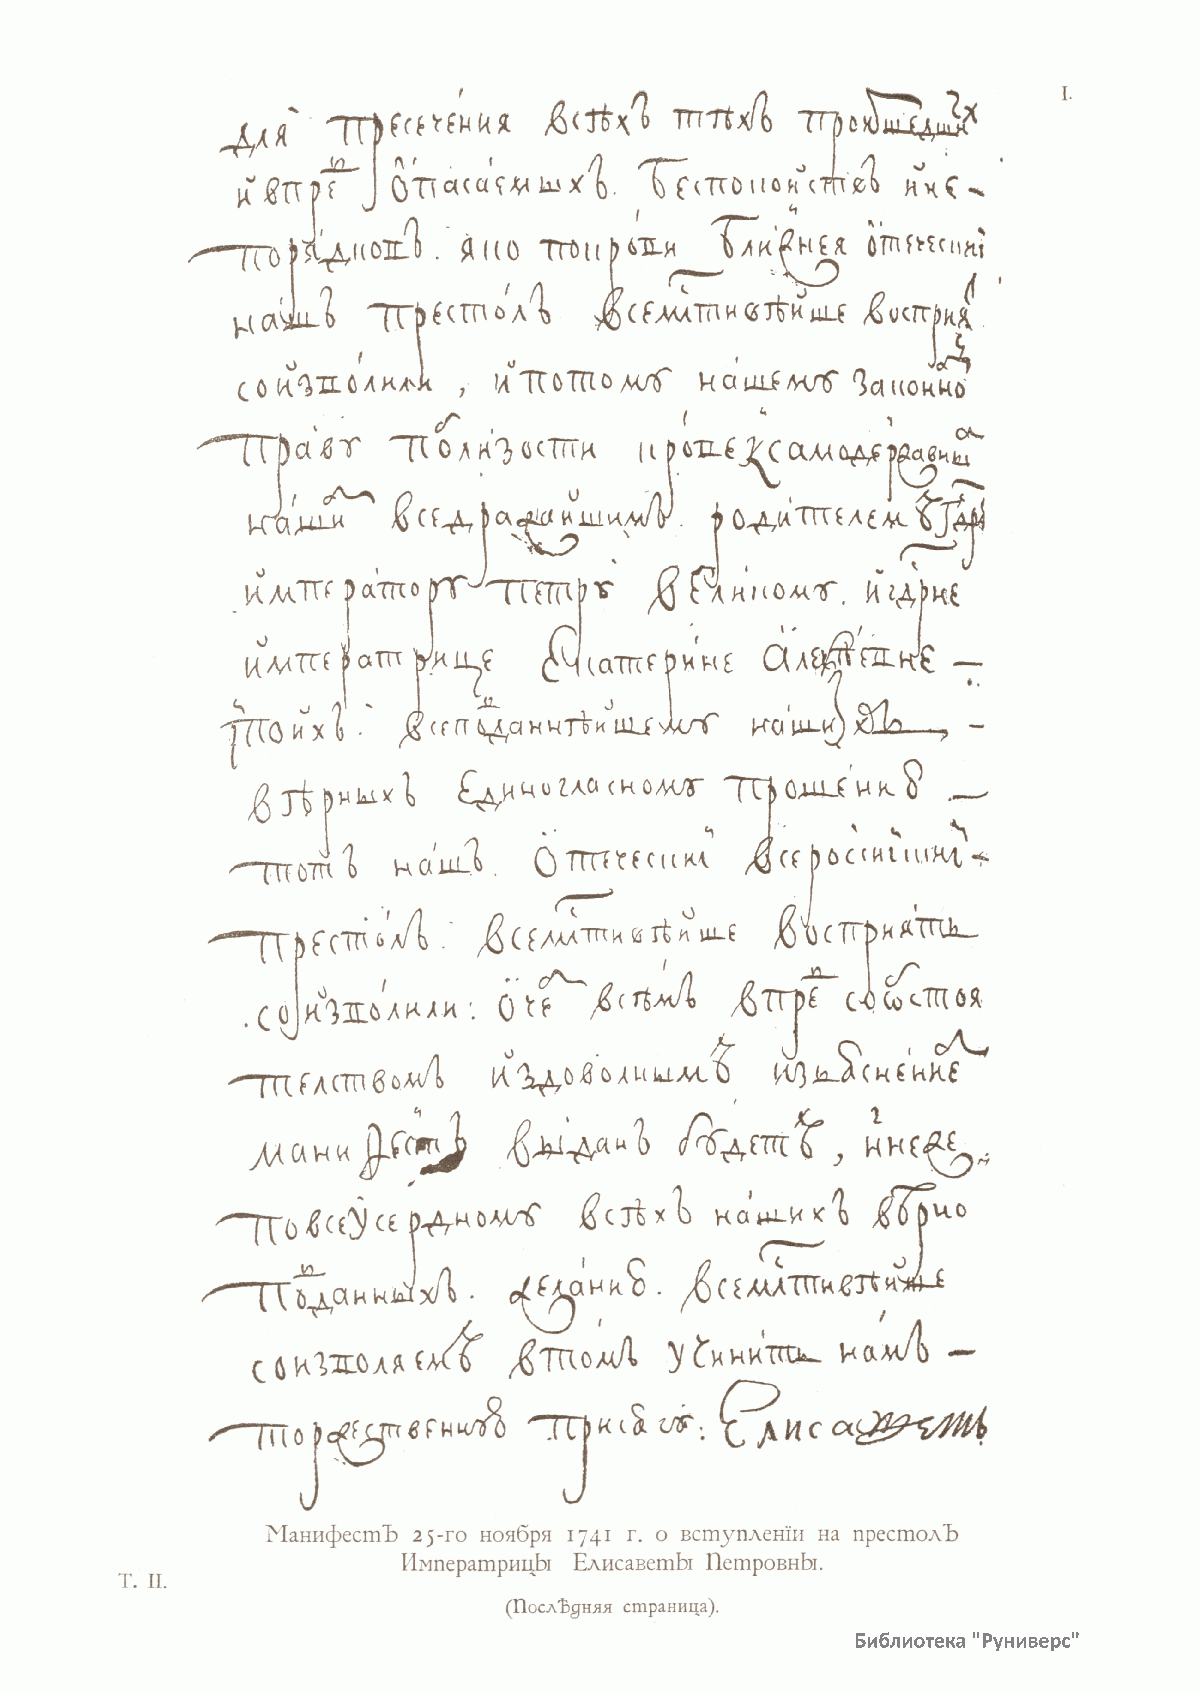 I.
для пресечения всѣхъ тѣхъ происшедших
и впредь опасаемыхъ. безпокойствъ и не-
порядковъ. яко по крови ближняя отеческии
нашъ престолъ всемлтивѣйше восприять
соизволили, и потому нашему законно
праву по близости крови к самодержавным
нашим вседражайшимъ. родителем гдрю
императору петру великому. и гдрне
императрице Екатерине Алеѯѣевне —
и по ихъ. всеподданнѣйшему наших —
вѣрныхъ единогласному прошению —
тотъ нашъ. отеческии всероссискии —
престолъ. всемлтивѣйше восприять
соизволили: о чем всѣмъ впредь со обстоя
телствомъ и з доволнымъ изъяснением
манифестъ выданъ будетъ, и ныне же
по всеусердному всѣхъ нашихъ вѣрно
подданныхъ. желанию. всемлтивѣйше
соизволяемъ в томъ учинить намъ —
торжественную присягу. Елисаветъ
Манифестъ 25-го ноября 1741 г. о вступленїи на престолъ
Императрицы Елисаветы Петровны.
Т. II.
(Послѣдняя страница).
Библиотека "Руниверс"